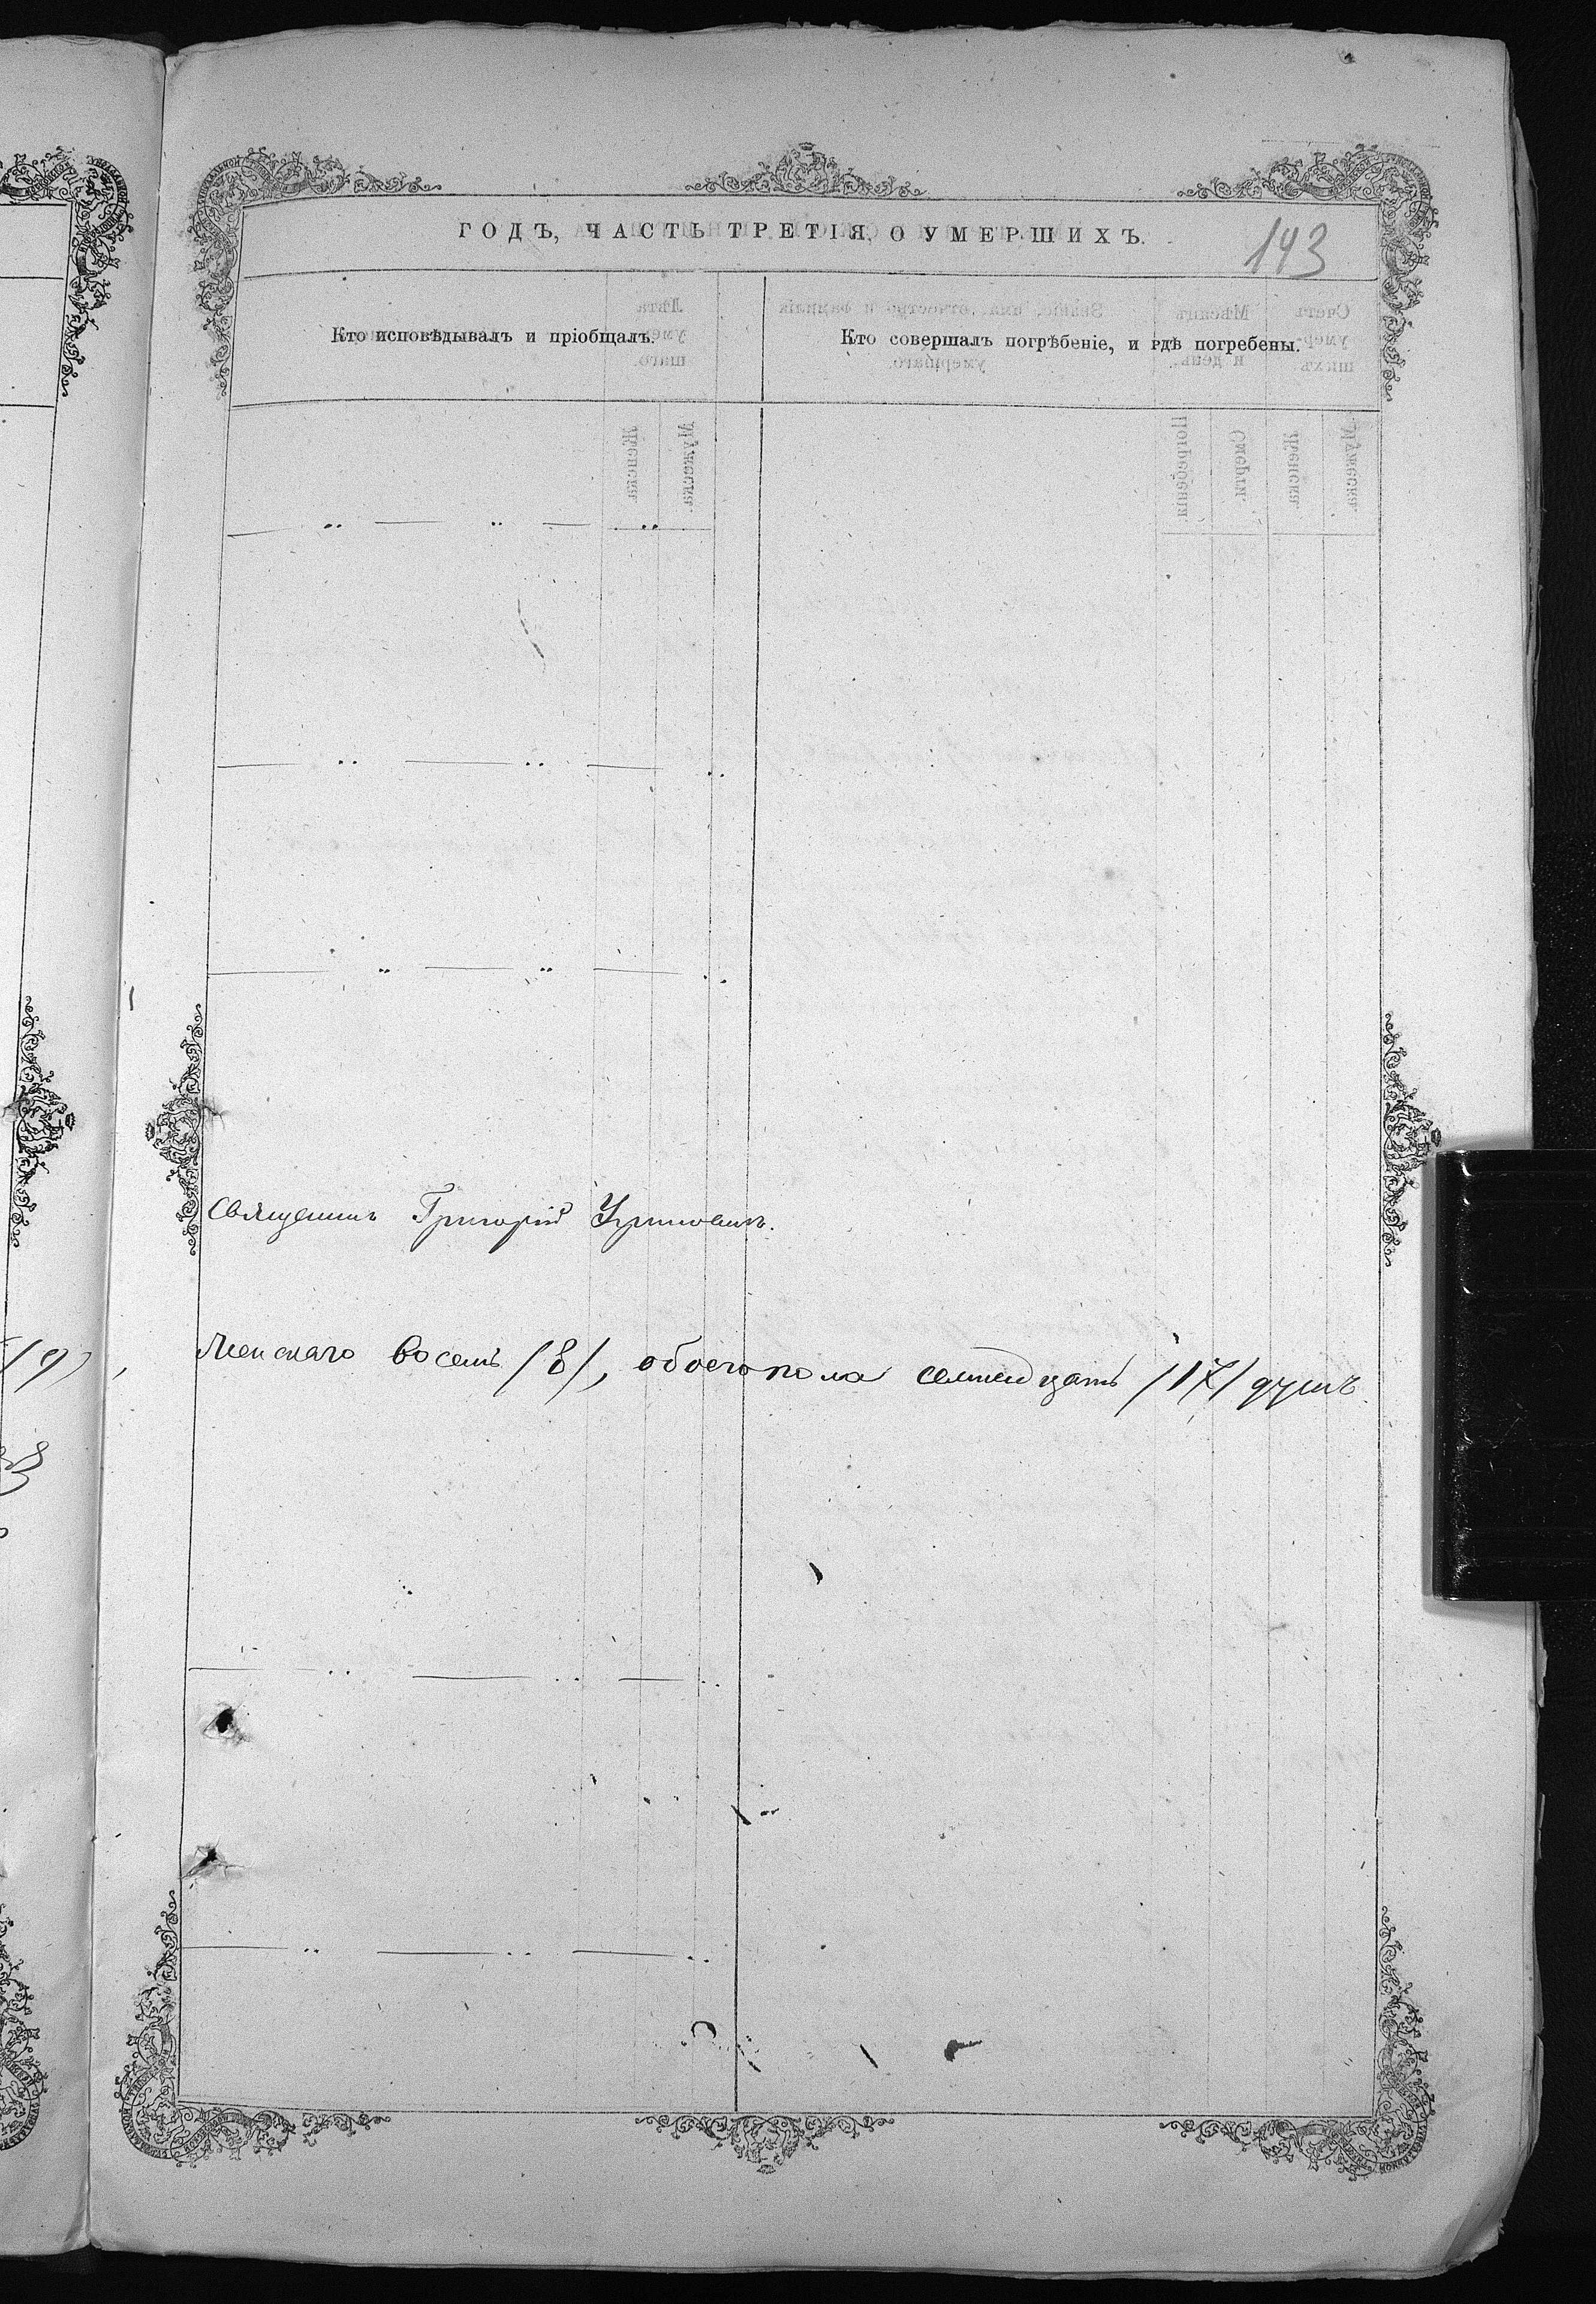 ГОДЪ, ЧАСТЬ ТРЕТІЯ, О УМЕРШИХЪ.
143
Кто исповѣдывалъ и пріобщалъ.
Кто совершалъ погрѣбеніе, и гдѣ погребены.
Священникъ Григорій
Женскаго восемь /8/, обоего пола семнадцать /17/ душъ.